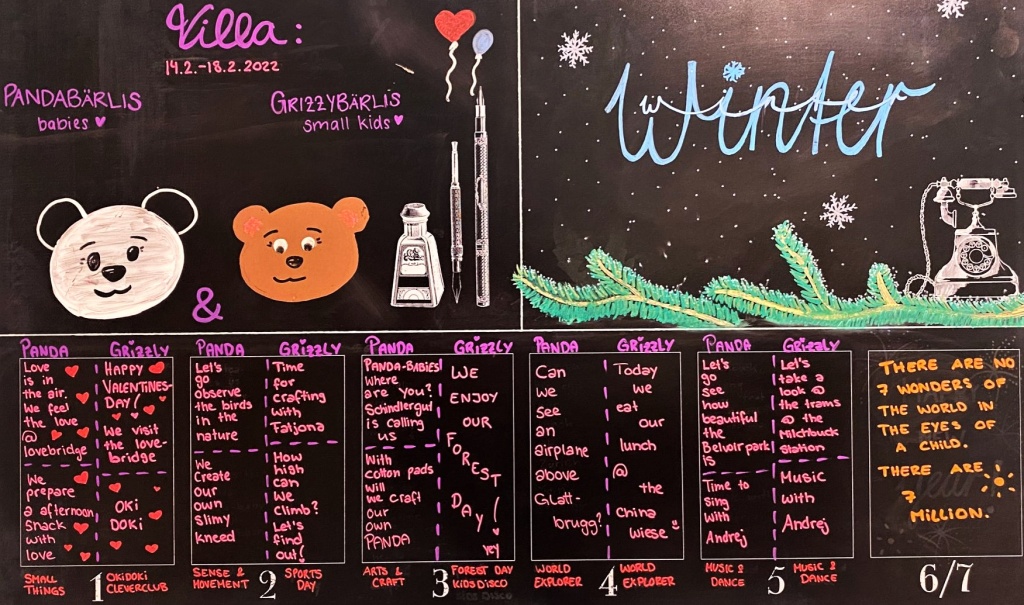 Villa:
14.2.-18.2.2022
PANDABÄRLIS
babies
GRIZZYBÄRLIS
small kids
&
Winter
PANDA
Love
is in
the air.
We feel
the love
@
lovebridge
We
prepare
a afternoon
snack
with
love
GRIZZLY
HAPPY
VALENTINES-
DAY!
We visit
the love-
bridge
OKi
DOKi
SMALL
THINGS
1
OKIDOKI
CLEVERCLUB
PANDA
Let's
go
observe
the birds
in the
nature
We
create
our
own
slimy
kneed
GRIZZLY
Time
for
crafting
with
Fatjona
How
high
can
we
climb?
Let's
find
out!
SENSE &
MOVEMENT
2
SPORTS
DAY
PANDA
PANDA-BABIES!
Where
are you?
Schindlergut
is calling
us
With
cotton pads
will
we craft
our
own
PANDA
GRIZZLY
WE
ENJOY
OUR
FOREST
DAY!
YEY
ARTS &
CRAFT
3
FOREST DAY
KIDS DISCO
PANDA
Can
we
see
an
airplane
above
Glatt-
brugg?
GRIZZLY
Today
we
eat
our
lunch
@
the
China
Wiese
WORLD
EXPLORER
4
WORLD
EXPLORER
PANDA
Let's
go
see
how
beautiful
the
Belvoirpark
is
Time to
sing
with
Andrej
GRIZZLY
Let's
take a
look @
the trams
@ the
Milchbuck
Station
Music
with
Andrej
MUSIC &
DANCE
5
MUSIC &
DANCE
THERE ARE NO
7 WONDERS OF
THE WORLD IN
THE EYES OF
A CHILD.
THERE ARE
7
MILLION.
6/7